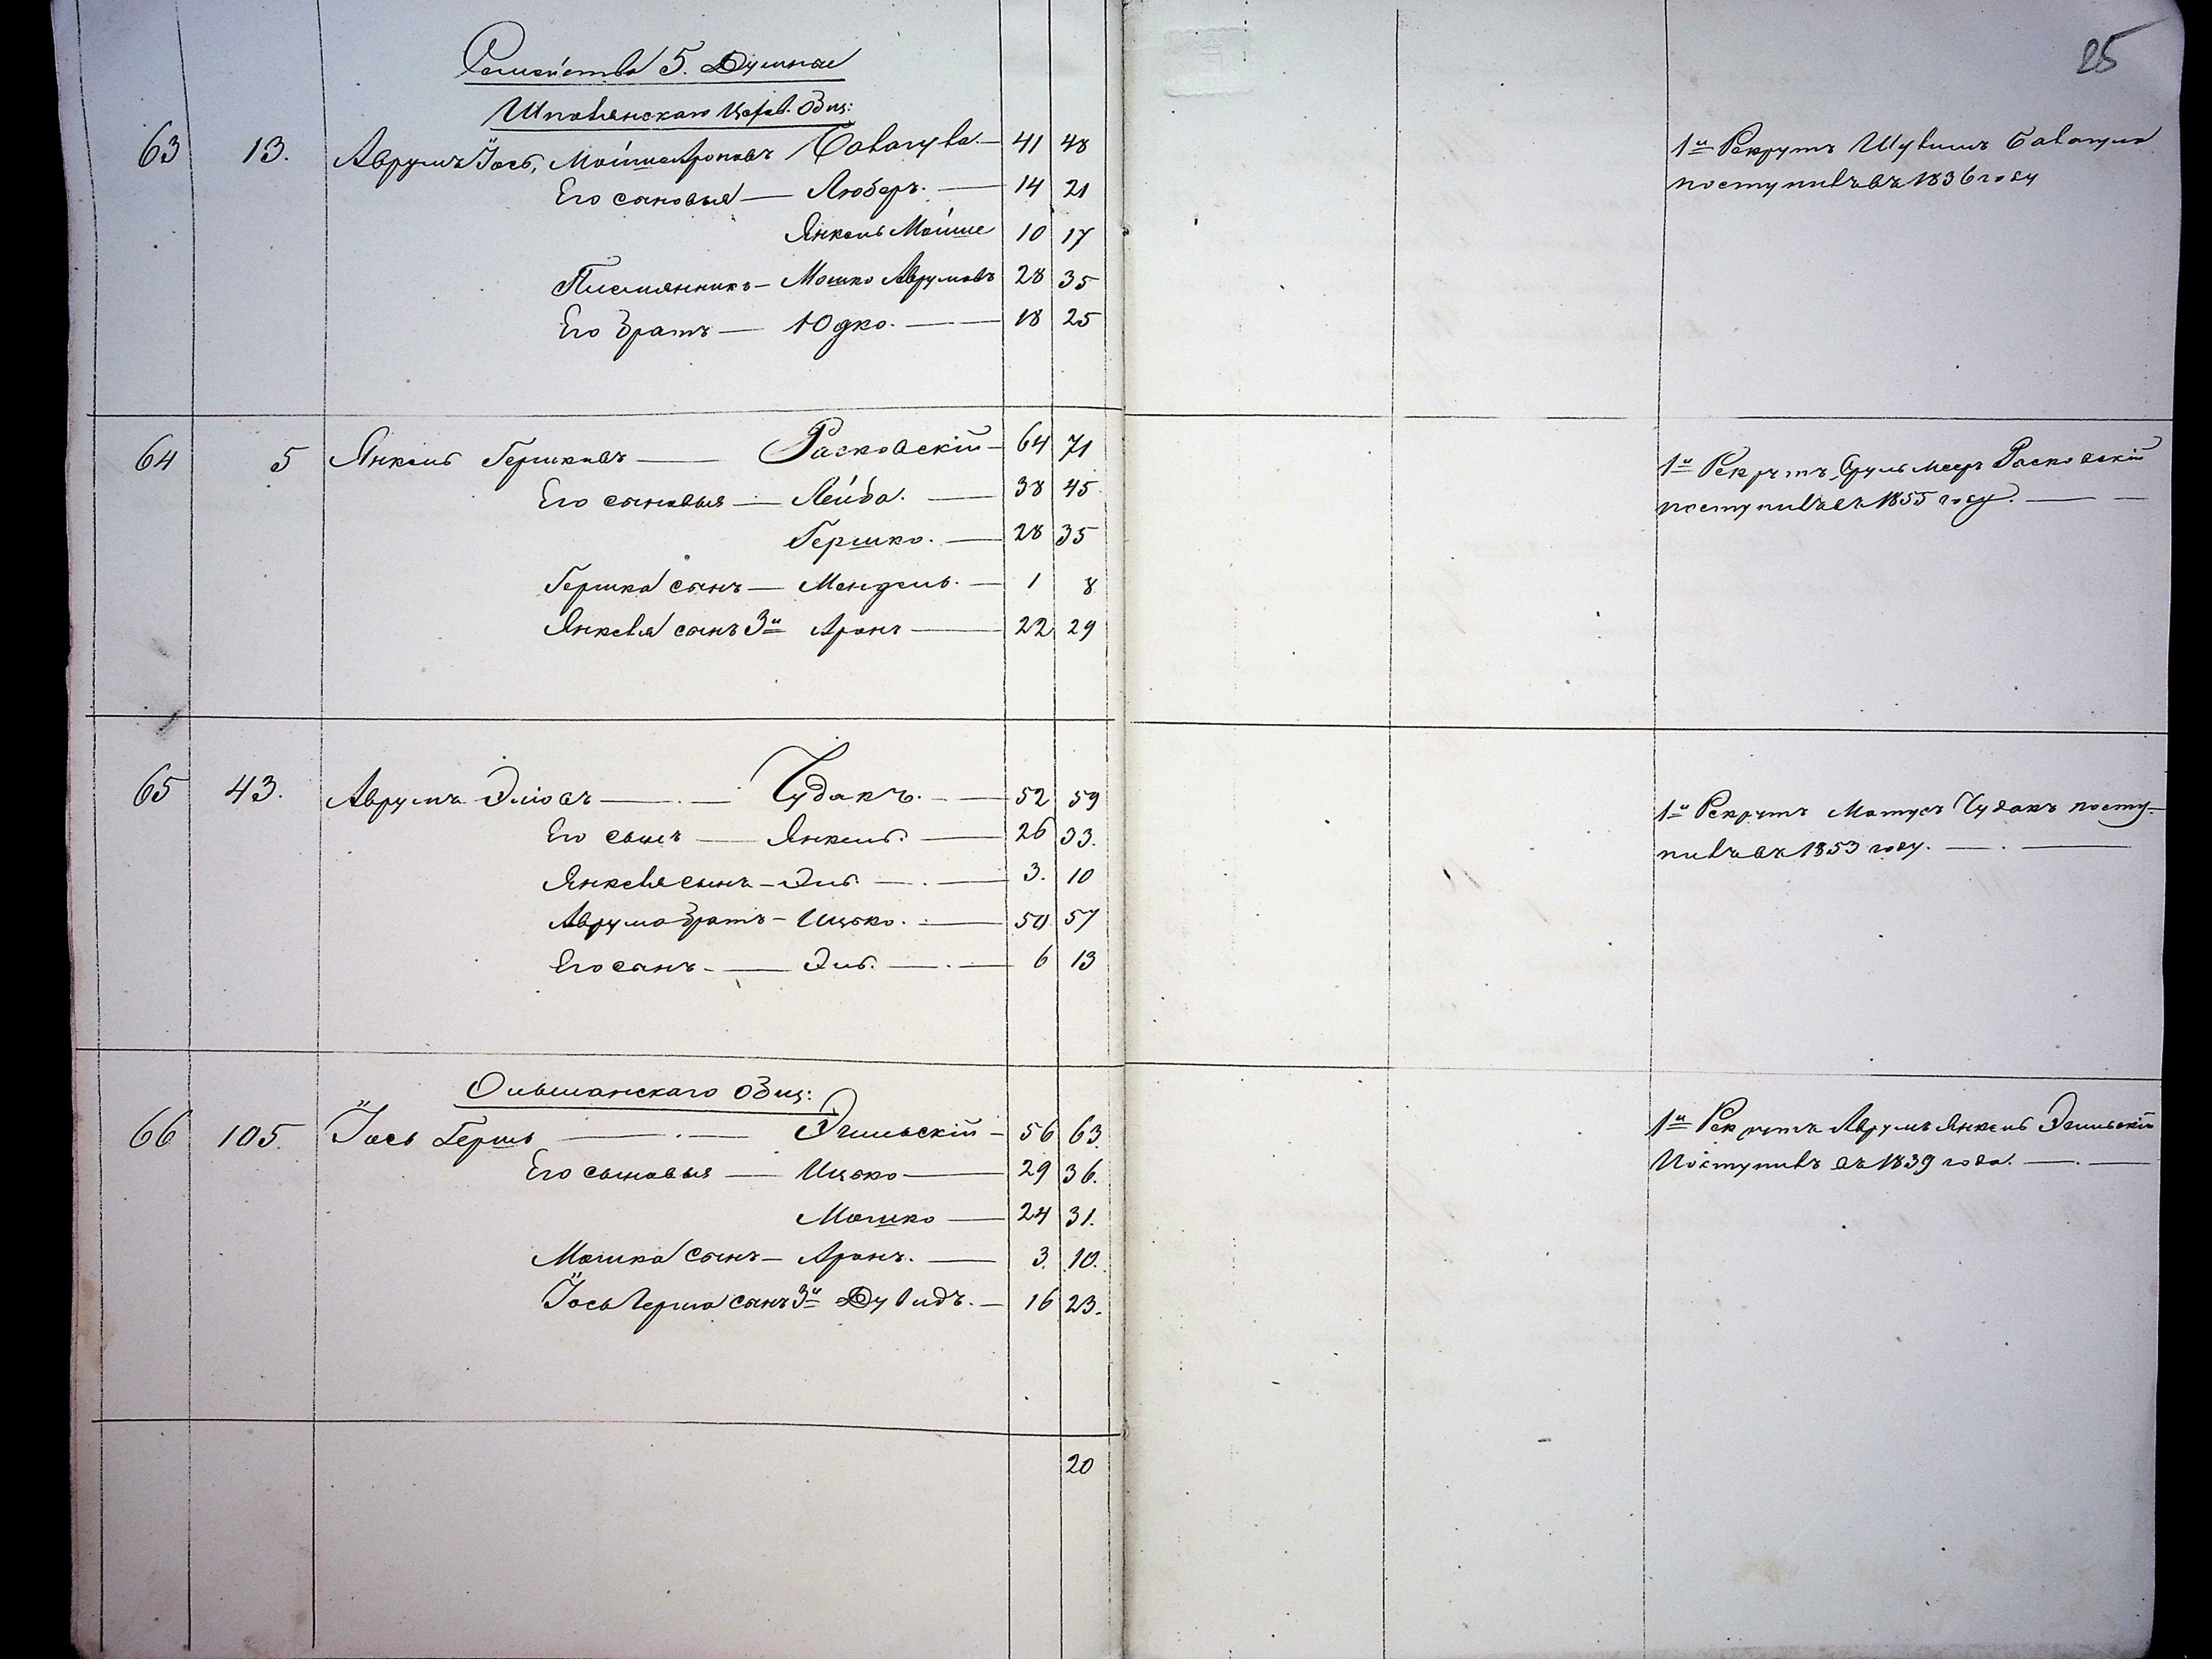 25
Семейства 5. Душные
Шполянскаго Евр. Общ:
63 13. Аврумъ Іось, Мойше Ароновъ Баваг—41 48
Его сыновья — Люберъ. — 14 21
Янкель Мойше 10 17
Племянникъ — Мошко Аврумовъ 28 35
Его братъ — Юдко. — 18 25
1й Рекрутъ Шулимъ
поступивъ въ 1836 году
64 5 Янкель Гершковъ — Расковскій — 64 71
Его сыновья — Лейба. — 38 45
Гершко. — 28 35
Гершка сынъ — Мендель. — 1 8
Янкеля сынъ 3й Аронъ — 22 29
1й Рекрутъ Сруль Меер Расковскій
поступивъ въ 1855 году. — —
65 43. Аврумъ Эліовъ — . — Чудакъ. — 52 59
Его сынъ — Янкель. — 26 33.
Янкеля сынъ — Эль. — . — 3. 10
Аврума братъ — Ицько. — 50 57
Его сынъ. — Эль. — . — 6 13
1й Рекрутъ Матусъ Чудакъ посту-
пивъ въ 1853 году. — . —
Ольшанскаго Общ:
66 105. Іось Гершъ — . — Эгильскій — 56 63.
Его сыновья — Ицько — 29 36.
Мошко — 24 31.
Мошка сынъ — Аронъ. — 3. 10.
Іось Герша сынъ 3й Дувидъ. — 16 23.
1й Рекрутъ Аврумъ Янкель Эгильскій
Поступивъ въ 1839 года. — . —
20